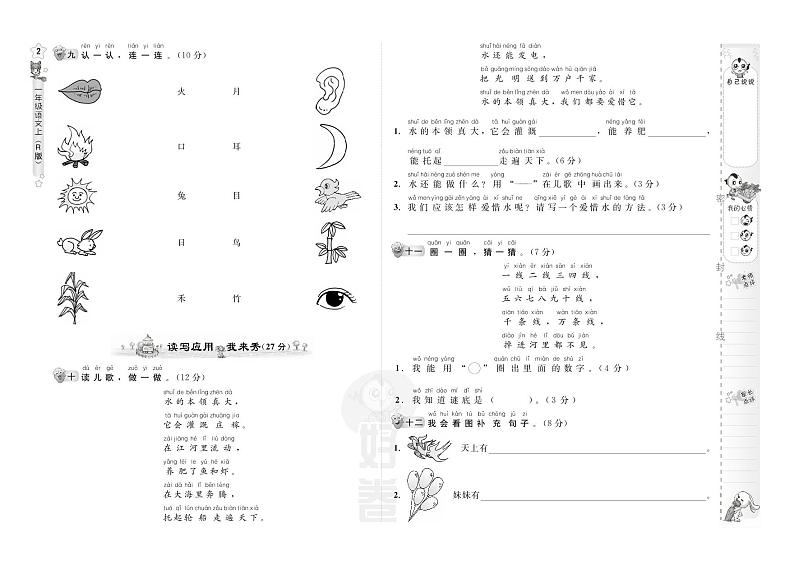 2
一年级语文上(R版)
rèn yi rèn lián yi lián
九 认一认,连一连。(10分)
火 月
口 耳
兔 目
日 鸟
禾 竹
读写应用 我来秀(27分)
dú ér gē zuò yi zuò
十 读儿歌,做一做。(12分)
shuǐ de běn lǐng zhēn dà
水的本领真大,
tā huì guàn gài zhuāng jia
它会灌溉庄稼。
zài jiāng hé lǐ liú dòng
在江河里流动,
yǎng féi le yú hé xiā
养肥了鱼和虾。
zài dà hǎi lǐ bēn téng
在大海里奔腾,
tuō qǐ lún chuán zǒu biàn tiān xià
托起轮船走遍天下。
shuǐ hái néng fā diàn
水还能发电,
bǎ guāng míng sòng dào wàn hù qiān jiā
把光明送到万户千家。
shuǐ de běn lǐng zhēn dà wǒ men dōu yào ài xī tā
水的本领真大,我们都要爱惜它。
shuǐ de běn lǐng zhēn dà tā huì guàn gài néng yǎng féi
1. 水的本领真大,它会灌溉________,能养肥________,
néng tuō qǐ zǒu biàn tiān xià
能托起________走遍天下。(6分)
shuǐ hái néng zuò shén me yòng zài ér gē zhōng huà chū lái
2. 水还能做什么?用“——”在儿歌中画出来。(3分)
wǒ men yīng gāi zěn yàng ài xī shuǐ ne qǐng xiě yí gè ài xī shuǐ de fāng fǎ
3. 我们应该怎样爱惜水呢?请写一个爱惜水的方法。(3分)
________________。
quān yi quān cāi yi cāi
十一 圈一圈,猜一猜。(7分)
yí xiàn èr xiàn sān sì xiàn
一线二线三四线,
wǔ liù qī bā jiǔ shí xiàn
五六七八九十线,
qiān tiáo xiàn wàn tiáo xiàn
千条线,万条线,
diào jìn hé lǐ dōu bú jiàn
掉进河里都不见。
wǒ néng yòng quān chū lǐ miàn de shù zì
1. 我能用“○”圈出里面的数字。(4分)
wǒ zhī dào mí dǐ shì
2. 我知道谜底是( )。(3分)
wǒ huì kàn tú bǔ chōng jù zi
十二 我会看图补充句子。(8分)
1. 天上有________________。
2. 妹妹有________________。
自己说说
我的心情
密
封
线
老师点评
家长点评
好卷